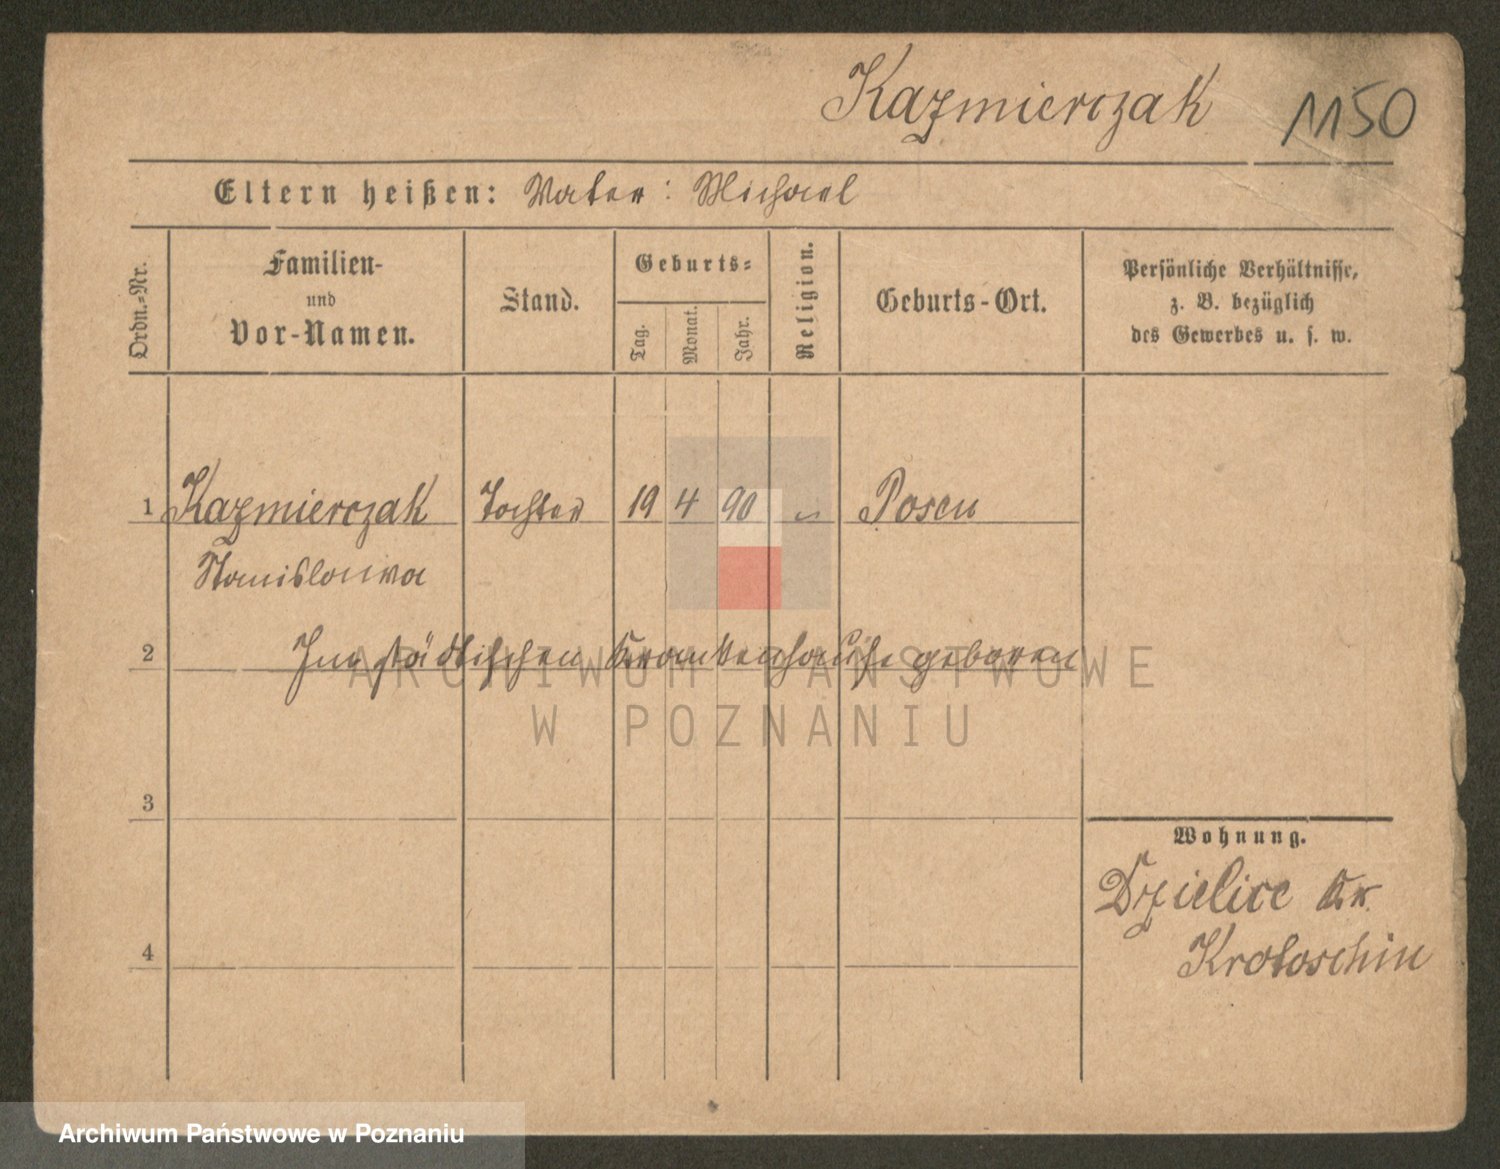 Kazmierczak 1150
Eltern heißen: Vater: Michael
Ordn.=Nr.
Familien-
und
Vor-Namen.
Stand.
Geburts=
Tag.
Monat.
Jahr.
Religion.
Geburts-Ort.
Persönliche Verhältnisse,
z. B. bezüglich
des Gewerbes u. s. w.
1 Kazmierczak Tochter 19 4 90 Posen
Stanislawa
2 Im städtischen Krankenhause geboren
ARCHIWUM PAŃSTWOWE
W POZNANIU
3
Wohnung.
Dzielice Kr.
Krotoschin
4
Archiwum Państwowe w Poznaniu